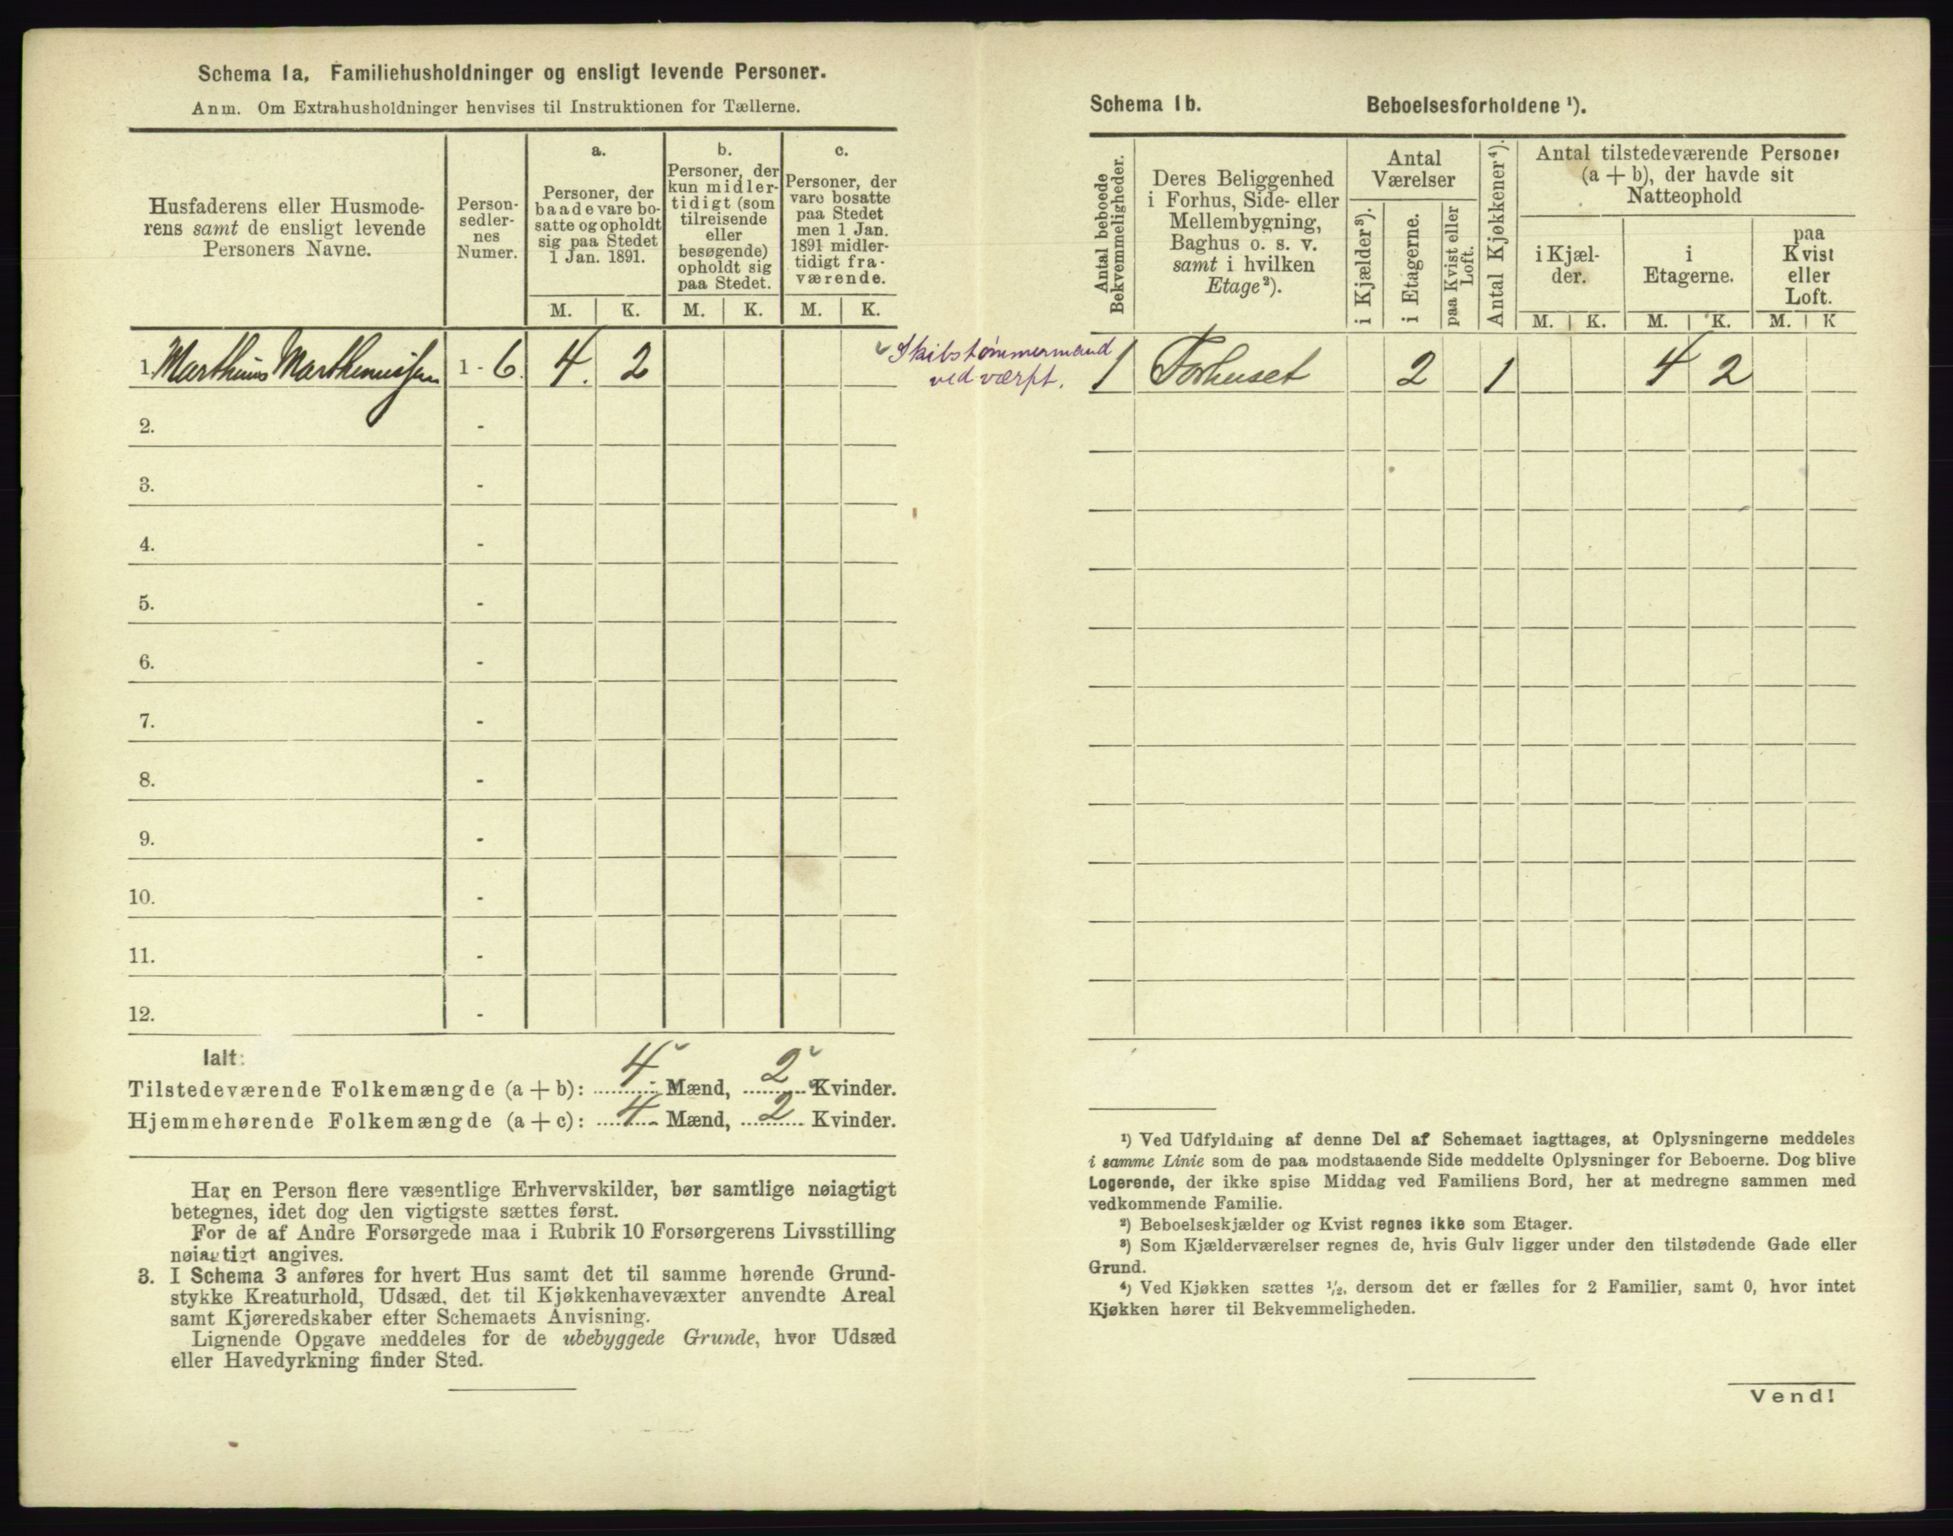 Schema 1a, Familiehusholdninger og ensligt levende Personer.
Anm. Om Extrahusholdninger henvises til Instruktionen for Tællerne.
Husfaderens eller Husmode-
rens samt de ensligt levende
Personers Navne.
Person-
sedler-
nes
Numer.
a.
Personer, der
baade vare bo-
satte og opholdt
sig paa Stedet
1 Jan. 1891.
b.
Personer, der
kun midler-
tidigt (som
tilreisende
eller
besøgende)
opholdt sig
paa Stedet.
c.
Personer, der
vare bosatte
paa Stedet
men 1 Jan.
1891 midler-
tidigt fra-
værende.
M. K. M. K. M. K.
1. Marthinus Marthinussen 1 - 6. 4. 2
Skibstømmermand
ved værft.
2. -
3. -
4. -
5. -
6. -
7. -
8. -
9. -
10. -
11. -
12. -
Ialt:
Tilstedeværende Folkemængde (a + b): 4 Mænd, 2 Kvinder.
Hjemmehørende Folkemængde (a + c): 4 Mænd, 2 Kvinder.
Har en Person flere væsentlige Erhvervskilder, bør samtlige nøiagtigt
betegnes, idet dog den vigtigste sættes først.
For de af Andre Forsørgede maa i Rubrik 10 Forsørgerens Livsstilling
nøiagtigt angives.
3. I Schema 3 anføres for hvert Hus samt det til samme hørende Grund-
stykke Kreaturhold, Udsæd, det til Kjøkkenhavevæxter anvendte Areal
samt Kjøreredskaber efter Schemaets Anvisning.
Lignende Opgave meddeles for de ubebyggede Grunde, hvor Udsæd
eller Havedyrkning finder Sted.
Schema 1b. Beboelsesforholdene ¹).
Antal beboede
Bekvemmeligheder.
Deres Beliggenhed
i Forhus, Side- eller
Mellembygning,
Baghus o. s. v.
samt i hvilken
Etage²).
Antal
Værelser
i Kjælder³).
i Etagerne.
paa Kvist eller
Loft.
Antal Kjøkkener⁴).
Antal tilstedeværende Personer
(a + b), der havde sit
Natteophold
i Kjæl-
der.
i
Etagerne.
paa
Kvist
eller
Loft.
M. K. M. K. M. K
1 Forhuset 2 1 4 2
¹) Ved Udfyldning af denne Del af Schemaet iagttages, at Oplysningerne meddeles
i samme Linie som de paa modstaaende Side meddelte Oplysninger for Beboerne. Dog blive
Logerende, der ikke spise Middag ved Familiens Bord, her at medregne sammen med
vedkommende Familie.
²) Beboelseskjælder og Kvist regnes ikke som Etager.
³) Som Kjælderværelser regnes de, hvis Gulv ligger under den tilstødende Gade eller
Grund.
⁴) Ved Kjøkken sættes ½, dersom det er fælles for 2 Familier, samt 0, hvor intet
Kjøkken hører til Bekvemmeligheden.
Vend!